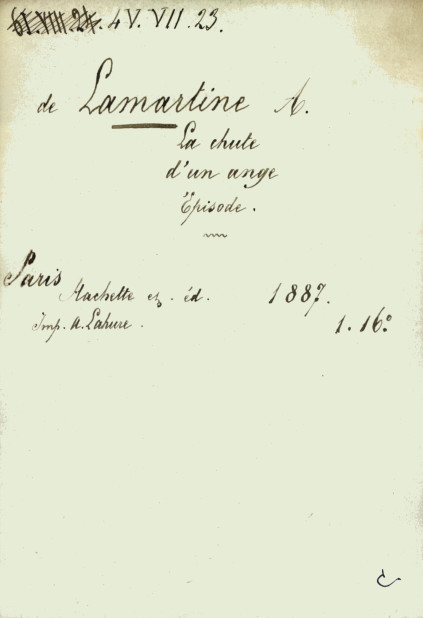 4 V. VII. 23.
de Lamartine A.
La chute
d'un ange
Épisode.
Paris
Hachette et. éd. 1887.
Imp. A. Lahure.
1. 16°